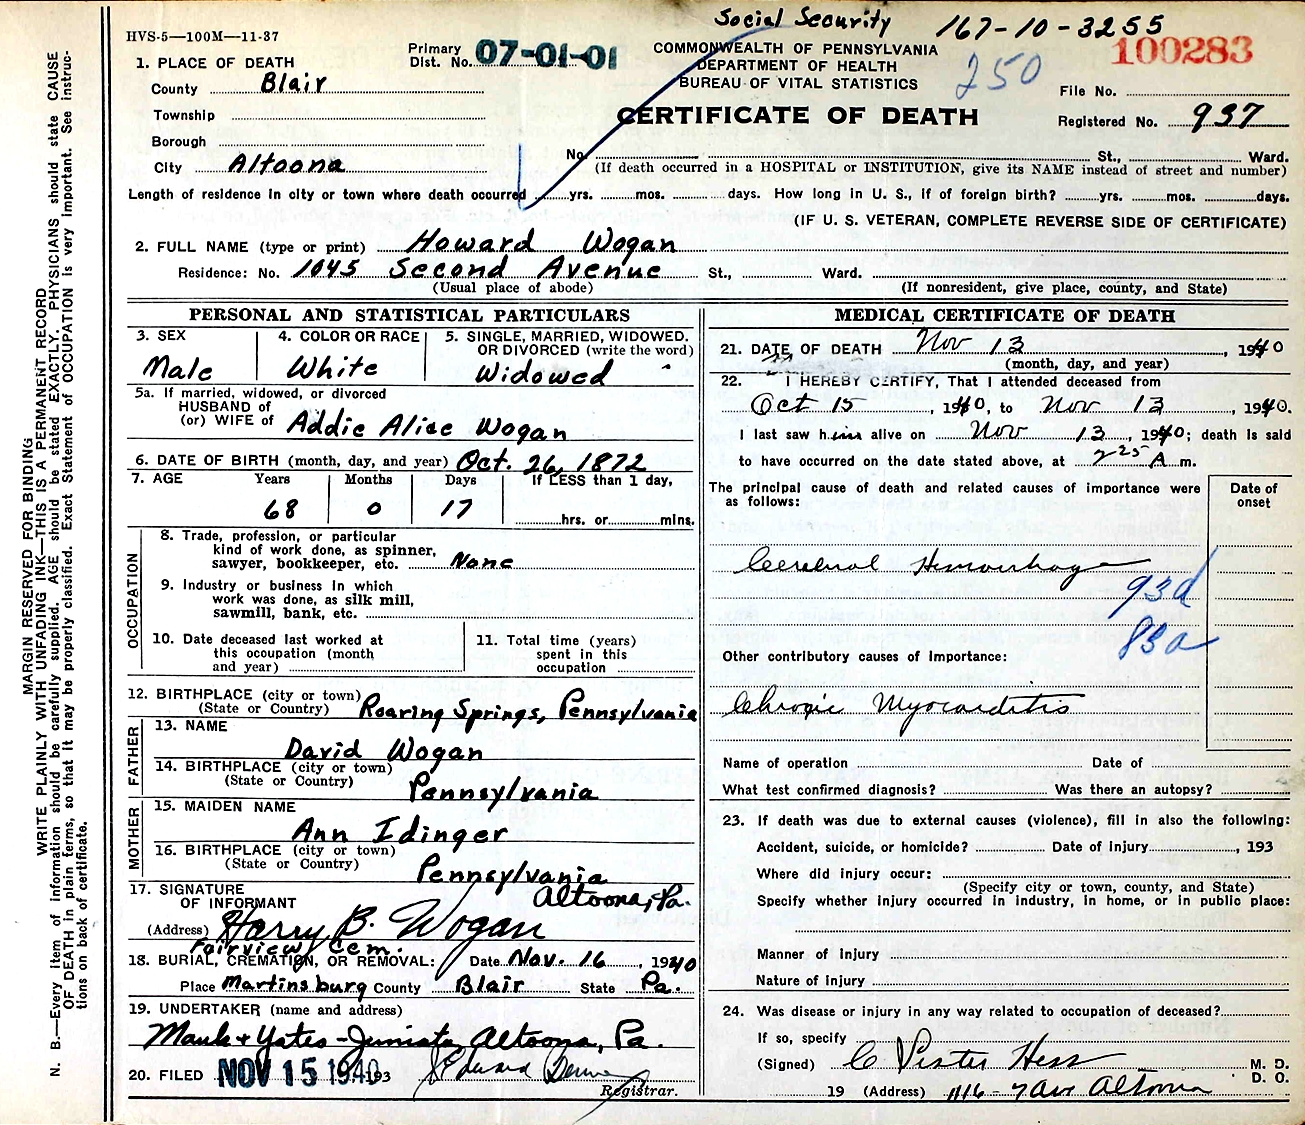 Social Security 167-10-3255
HVS-5—100M—11-37
Primary Dist. No. 07-01-01
COMMONWEALTH OF PENNSYLVANIA
DEPARTMENT OF HEALTH
BUREAU OF VITAL STATISTICS
250
100283
CERTIFICATE OF DEATH
File No.
Registered No. 937
1. PLACE OF DEATH
County Blair
Township
Borough
City Altoona
No. St., Ward.
(If death occurred in a HOSPITAL or INSTITUTION, give its NAME instead of street and number)
Length of residence in city or town where death occurred yrs. mos. days. How long in U. S., if of foreign birth? yrs. mos. days.
(IF U. S. VETERAN, COMPLETE REVERSE SIDE OF CERTIFICATE)
2. FULL NAME (type or print) Howard Wogan
Residence: No. 1045 Second Avenue St., Ward.
(Usual place of abode) (If nonresident, give place, county, and State)
PERSONAL AND STATISTICAL PARTICULARS
3. SEX
Male
4. COLOR OR RACE
White
5. SINGLE, MARRIED, WIDOWED, OR DIVORCED (write the word)
Widowed
5a. If married, widowed, or divorced
HUSBAND of
(or) WIFE of Addie Alice Wogan
6. DATE OF BIRTH (month, day, and year) Oct. 26, 1872
7. AGE Years Months Days If LESS than 1 day,
68 0 17 hrs. or mins.
OCCUPATION
8. Trade, profession, or particular
kind of work done, as spinner,
sawyer, bookkeeper, etc. None
9. Industry or business in which
work was done, as silk mill,
sawmill, bank, etc.
10. Date deceased last worked at
this occupation (month
and year)
11. Total time (years)
spent in this
occupation
12. BIRTHPLACE (city or town)
(State or Country) Roaring Springs, Pennsylvania
FATHER
13. NAME
David Wogan
14. BIRTHPLACE (city or town)
(State or Country) Pennsylvania
MOTHER
15. MAIDEN NAME
Ann Idinger
16. BIRTHPLACE (city or town)
(State or Country) Pennsylvania
17. SIGNATURE
OF INFORMANT Altoona, Pa.
(Address) Harry B. Wogan
Fairview Cem.
18. BURIAL, CREMATION, OR REMOVAL: Date Nov. 16, 1940
Place Martinsburg County Blair State Pa.
19. UNDERTAKER (name and address)
Mauk & Yates - Juniata, Altoona, Pa.
20. FILED NOV 15 1940 193
Registrar.
MEDICAL CERTIFICATE OF DEATH
21. DATE OF DEATH Nov 13, 1940
(month, day, and year)
22. I HEREBY CERTIFY, That I attended deceased from
Oct 15, 1940, to Nov 13 1940.
I last saw him alive on Nov 13, 1940; death is said
to have occurred on the date stated above, at 2 25 A m.
The principal cause of death and related causes of importance were as follows:
Date of onset
Cerebral Hemorrhage
93d
83a
Other contributory causes of importance:
Chronic Myocarditis
Name of operation Date of
What test confirmed diagnosis? Was there an autopsy?
23. If death was due to external causes (violence), fill in also the following:
Accident, suicide, or homicide? Date of injury , 193
Where did injury occur:
(Specify city or town, county, and State)
Specify whether injury occurred in industry, in home, or in public place:
Manner of injury
Nature of injury
24. Was disease or injury in any way related to occupation of deceased?
If so, specify
(Signed) Hess M. D.
D. O.
19 (Address) 1116 - 7 Ave Altoona
MARGIN RESERVED FOR BINDING
WRITE PLAINLY WITH UNFADING INK—THIS IS A PERMANENT RECORD
N. B.—Every item of information should be carefully supplied. AGE should be stated EXACTLY. PHYSICIANS should state CAUSE
OF DEATH in plain terms, so that it may be properly classified. Exact Statement of OCCUPATION is very important. See instruc-
tions on back of certificate.